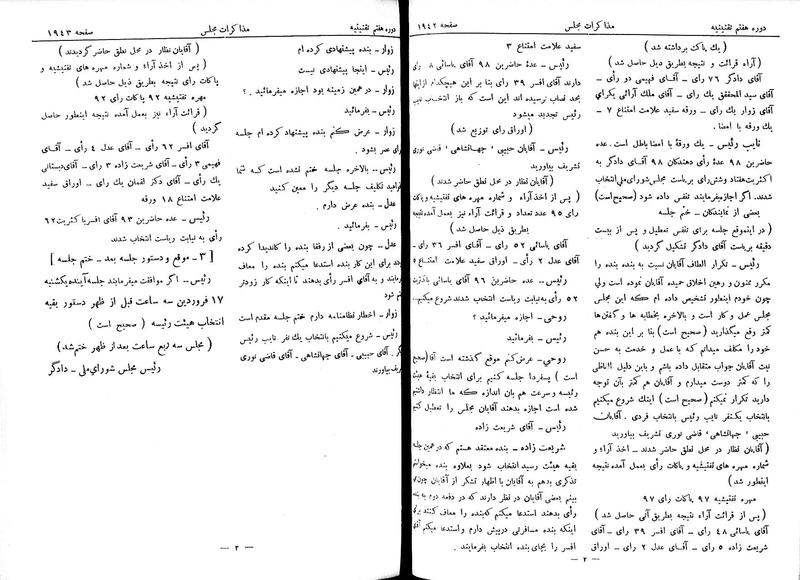 دوره هفتم تقنینیه
مذاکرات مجلس
صفحه ۱۹۴۲
( یك ناك برداشته شد )
( آراء قرائت و نتیجه بطریق ذیل حاصل شد )
آقای دادگر ۷۶ رای ـ آقای فهیمی دو رأی ـ
آقای سید المحققق یك رای ـ آقای ملك آرائی یکرأی
آقای زوار یك رای ـ ورقه سفید علامت امتناع ۷ ـ
یك ورقه با امضا .
نایب رئیس ـ یك ورقهٔ با امضا باطل است. عده
حاضرین ۹۸ عدهٔ رأی دهندگان ۹۸ آقای دادگر به
اکثریت هفتاد وشش رای بریاست مجلس شورای ملی انتخاب
شدند. اگر اجازه میفرمایند تنفس داده شود (صحیح است)
بعضی از نمایندگان ـ ختم جلسه
( در اینموقع جلسه برای تنفس تعطیل و پس از بیست
دقیقه بریاست آقای دادگر تشکیل گردید )
رئیس ـ تکرار الطاف آقایان نسبت به بنده بنده را
مکرر ممنون و رهین اخلاق حمیده آقایان نموده است ولی
چون خودم اینطور تشخیص داده ام که این مجلس
مجلس عمل و کار است و بالاخره بخطابه ها و گفتن‌ها
کمتر وقع میگذارید ( صحیح است) بنا بر این بنده هم
خود را مکلف میدانم که با عمل و خدمت به حسن
نیت آقایان جواب متقابل داده باشم و باین دلیل الفاظی
را که کمتر دوست میدارم و آقایان هم کمتر بآن توجه
دارید تکرار نمیکنم (صحیح است) اینك شروع میکنیم
بانتخاب یکنفر نایب رئیس بانتخاب فردی . آقایان
حبیبی ، جهانشاهی ، قاضی نوری تشریف بیاورید
( آقایان نظار در محل نطق حاضر شدند ـ اخذ آراء و
شماره مهره های تفتیشیه و پاکات رأی بعمل آمده نتیجه
اینطور شد )
مهره تفتیشیه ۹۷ پاکات رای ۹۷
( پس از قرائت آراء نتیجه بطریق آتی حاصل شد )
آقای یاسائی ۴۸ رای ـ آقای افسر ۳۹ رای ـ آقای
شریعت زاده ۵ رای ـ آقای عدل ۲ رای ـ اوراق
سفید علامت امتناع ۳
رئیس ـ عدهٔ حاضرین ۹۸ آقای یاسائی ۴۸ رای
دارند آقای افسر ۳۹ رای بنا بر این هیچکدام ازاینها
بحد نصاب نرسیده اند این است که باز انتخاب نایب
رئیس تجدید میشود
( اوراق رای توزیع شد )
رئیس ـ آقایان حبیبی ، جهانشاهی ، قاضی نوری
تشریف بیاورید
( آقایان نظار در محل نطق حاضر شدند )
( پس از اخذ آراء و شماره مهره های تفتیشیه و پاکات
رای ۹۵ عدد تعداد و قرائت آراء نیز بعمل آمده نتیجه
بطریق ذیل حاصل شد )
آقای یاسائی ۵۲ رای ـ آقای افسر ۳۶ رای ـ
آقای عدل ۲ رأی ـ اوراق سفید علامت امتناع ۵
رئیس ـ عده حاضرین ۹۶ آقای یاسائی باکثریت
۵۲ رأی به نیابت ریاست انتخاب شدند شروع میکنیم
روحی ـ اجازه میفرمائید ؟
رئیس ـ بفرمائید
روحی ـ عرض کنم موقع گذشته است آقا(صحیح
است ) پسفردا جلسه کنیم برای انتخاب بقیهٔ هیئت
رئیسه و سرعت هم بان اندازه که ما انتظار داشتیم
شده است اجازه بدهند آقایان مجلس را تعطیل کنیم
رئیس ـ آقای شریعت زاده
شریعت زاده ـ بنده معتقد هستم که در همین جلسه
بقیه هیئت رسید انتخاب شود بعلاوه بنده میخواهم
تذکری بدهم به آقایان با اظهار تشکر از آقایان چون
بینم بعضی آقایان در نظر دارند که در دفعه دوم به بنده
رأی بدهند استدعا میکنم که بنده را معاف کنند برای
اینکه بنده مسافرتی درپیش دارم و استدعا میکنم آقای
افسر را بجای بنده انتخاب بفرمایند .
ـ ۲ ـ
دوره هفتم تقنینیه
مذاکرات مجلس
صفحه ۱۹۴۳
زوار ـ بنده پیشنهادی کرده ام
رئیس ـ اینجا پیشنهادی نیست
زوار ـ در همین زمینه بود اجازه میفرمائید .
رئیس ـ بفرمائید
زوار ـ عرض کنم بنده پیشنهاد کرده ام جلسه
برای عصر بشود .
رئیس ـ بالاخره جلسه ختم نشده است که شما
تکلیف جلسه دیگر را معین کنید
عدل ـ بنده عرض دارم .
رئیس ـ بفرمائید .
عدل ـ چون بعضی از رفقا بنده را کاندیدا کرده
برای این کار بنده استدعا میکنم بنده را معاف
و به آقای افسر رأی بدهند تا اینکه کار زودتر
شود
زوار ـ اخطار نظامنامه دارم ختم جلسه مقدم است
رئیس ـ شروع میکنیم بانتخاب یك نفر نایب رئیس
آقای حبیبی ـ آقای جهانشاهی ـ آقای قاضی نوری
تشریف بیاورند
( آقایان نظار در محل نطق حاضر گردیدند )
( پس از اخذ آراء و شماره مهره های تفتیشیه و
پاکات رأی نتیجه بطریق ذیل حاصل شد )
مهره تفتیشیه ۹۲ پاکات رای ۹۲
( قرائت آراء نیز بعمل آمده نتیجه اینطور حاصل
گردید )
آقای افسر ۶۲ رأی ـ آقای عدل ۴ رای ـ آقای
فهیمی ۳ رأی ـ آقای شریعت زاده ۳ رای ـ آقای دبستانی
یك رأی ـ آقای دکتر لقمان یك رای ـ اوراق سفید
علامت امتناع ۱۸ ورقه
رئیس ـ عده حاضرین ۹۳ آقای افسر با کثریت ۶۲
رأی به نیابت ریاست انتخاب شدند
[ ۳ ـ موقع و دستور جلسه بعد ـ ختم جلسه ]
رئیس ـ اگر موافقت میفرمایند جلسه آینده یکشنبه
۱۷ فروردین سه ساعت قبل از ظهر دستور بقیه
انتخاب هیئت رئیسه ( صحیح است )
( مجلس سه ربع ساعت بعد از ظهر ختم شد )
رئیس مجلس شورای ملی ـ دادگر
ـ ۳ ـ